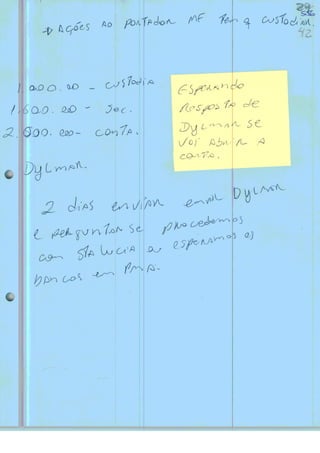 → AÇÕES AO PORTADOR MF TEM q CUSTODIAR.
42
1.000.00 - CUSTÓDIA
1.600.00 - Soc.
2.500.000 - CONTA.
DYLMAR.
ESPERANDO
RESPOSTA DE
DYLMAR SE
VAI ABRIR A
CONTA.
2 DIAS ENVIAR EMAIL DYLMAR
E PERGUNTAR SE PROCEDEMOS
COM STA LUCIA OU ESPERAMOS OS
BANCOS EM PMA.